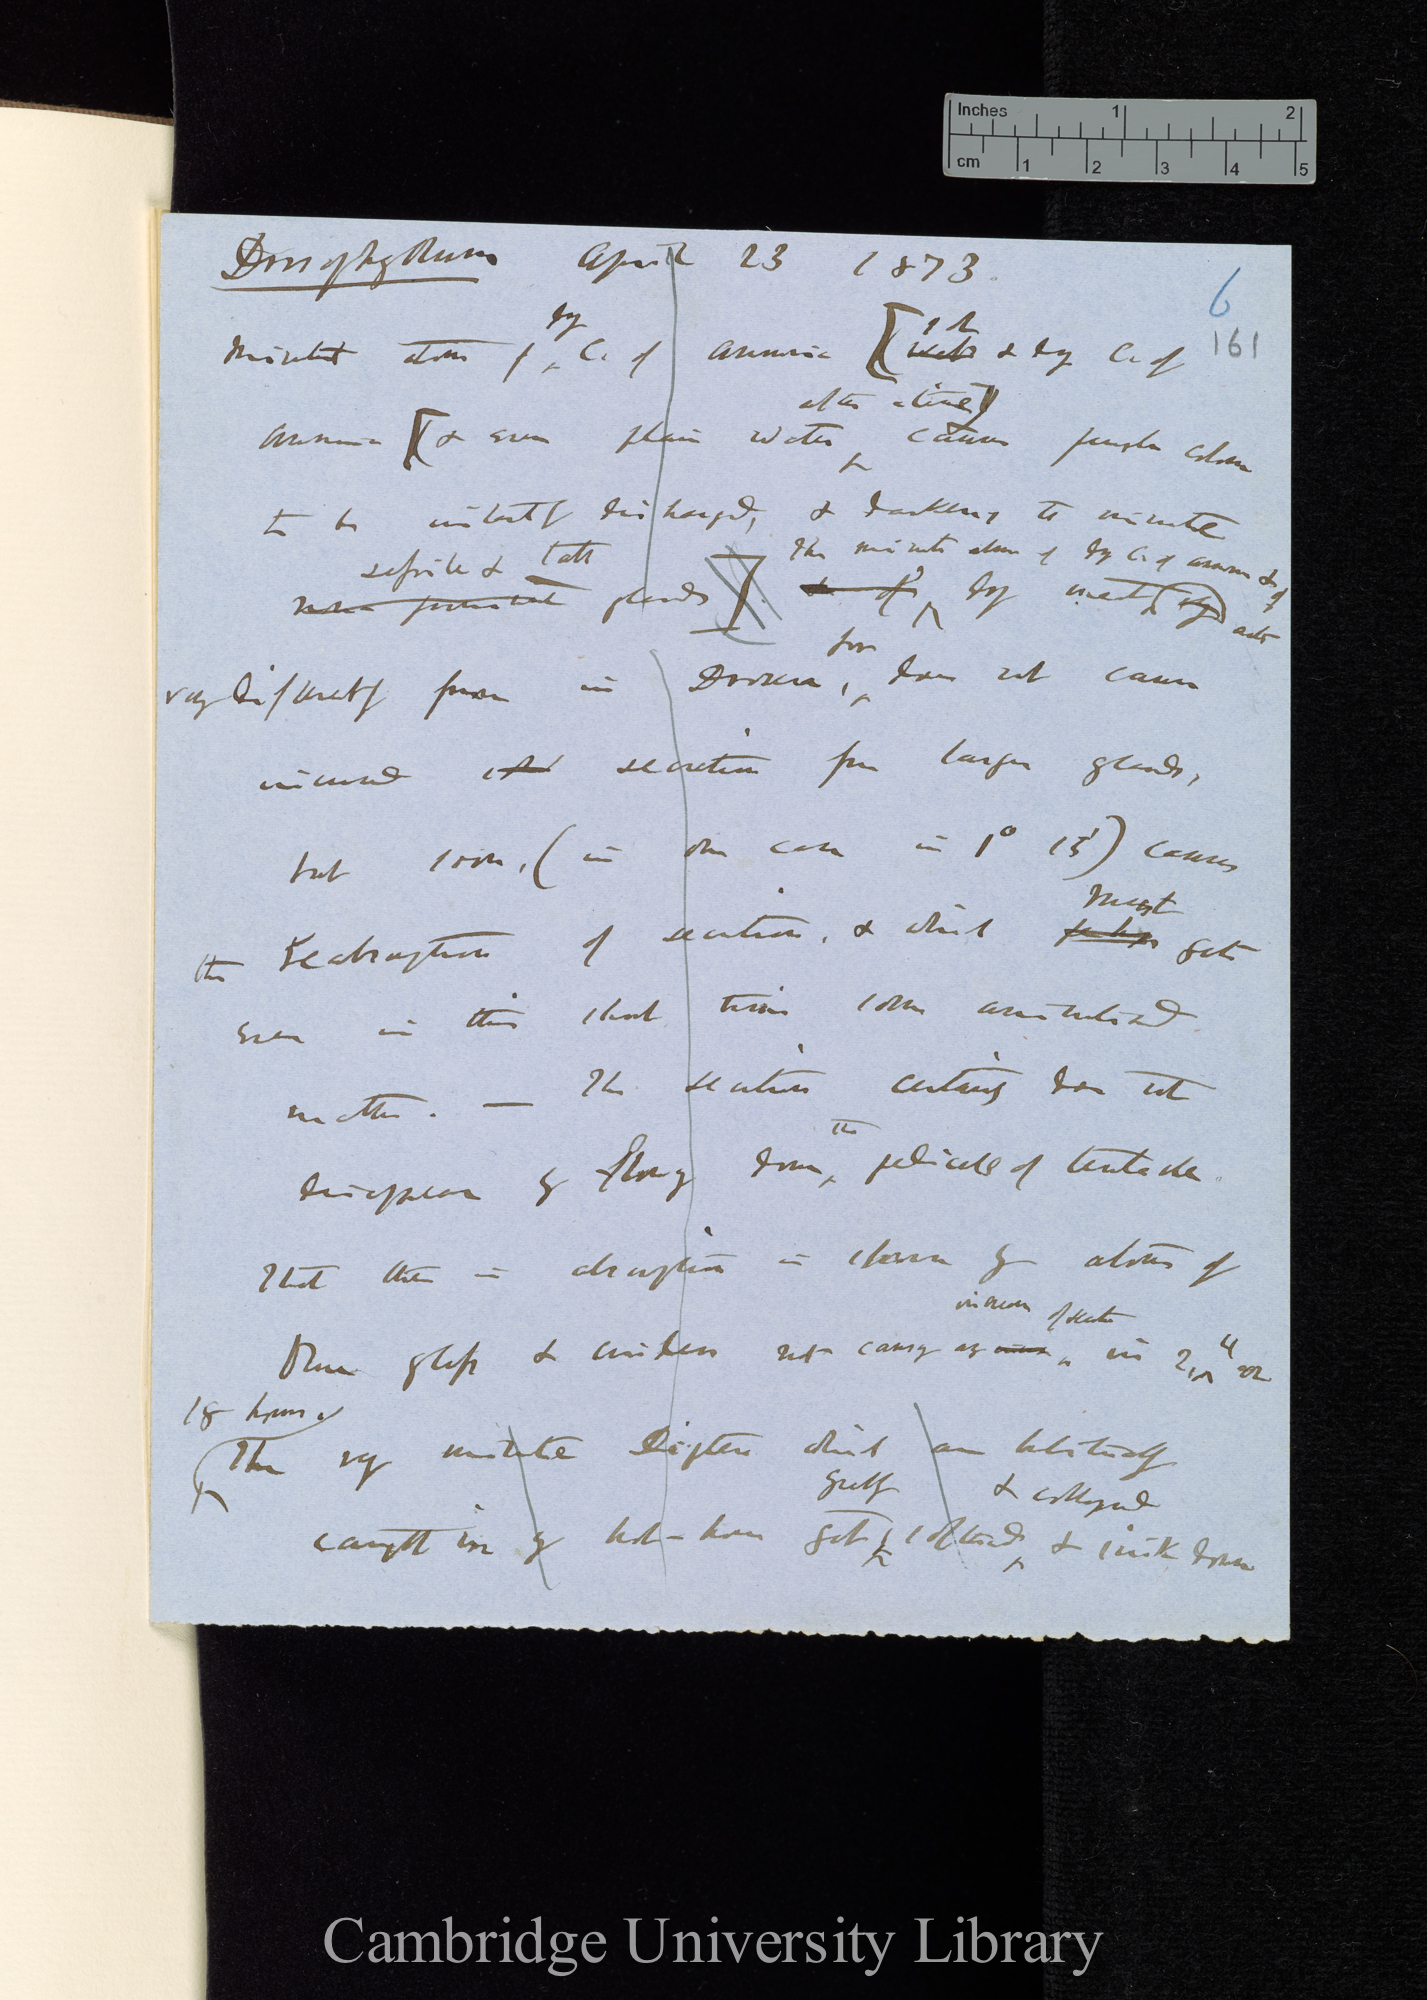 Inches 1 2
cm 1 2 3 4 5
Drosophyllum April 23 1873.
6
161
by
minute atoms of C. of ammonia [ & by C. of
after a time]
ammonia [& even plain water causes purple colour
to be instantly discharged, & darkens the minute
sessile & tall
glands]. The minute atoms of by C. of ammonia & of
by meat acts
for
very differently from in Drosera, does not cause
increased secretion from larger glands,
but soon, (in one case in 1° 15') causes
must
the Reabsorption of secretion, & which perhaps gets
even in this short time some animalised
matter. — The secretion certainly does not
the
disappear by flowing down pedicels of tentacle.
That there is absorption is shown by atoms of
increase of secretion
glass & cinders not causing any in 2, 4 or
18 hours.
The very minute Diptera which are habitually
greatly & collapsed
caught in my hot-house get softened, & sink down
Cambridge University Library